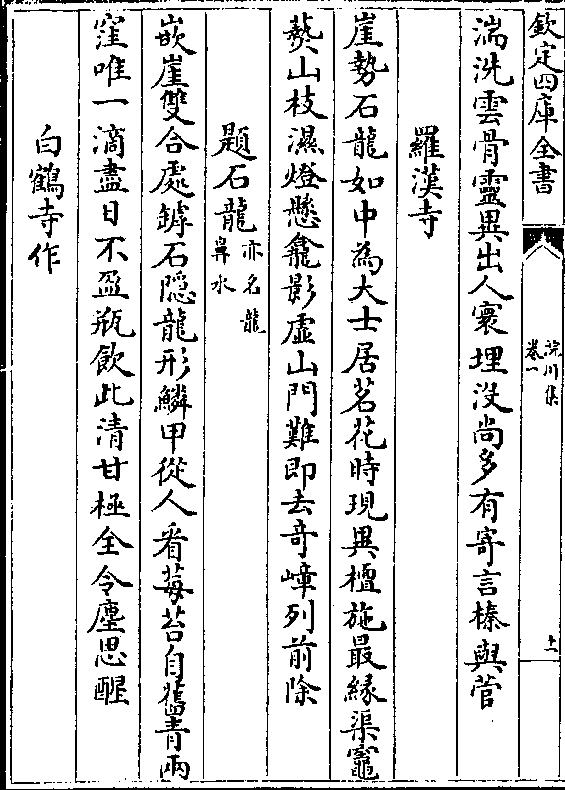 欽定四庫全書
浣川集
卷一
十
湍洗雲骨靈異出人寰埋没尚多有寄言榛與菅
羅漢寺
崖勢石龍如中為大士居茗花時現異檀施最緣渠竈
爨山枝濕燈懸龕影虛山門難即去竒嶂列前除
題石龍亦名龍鼻水
嵌崖雙合處罅石隠龍形鱗甲從人看莓苔自舊青兩
窪唯一滴盡日不盈瓶飲此清甘極全令塵思醒
白鶴寺作